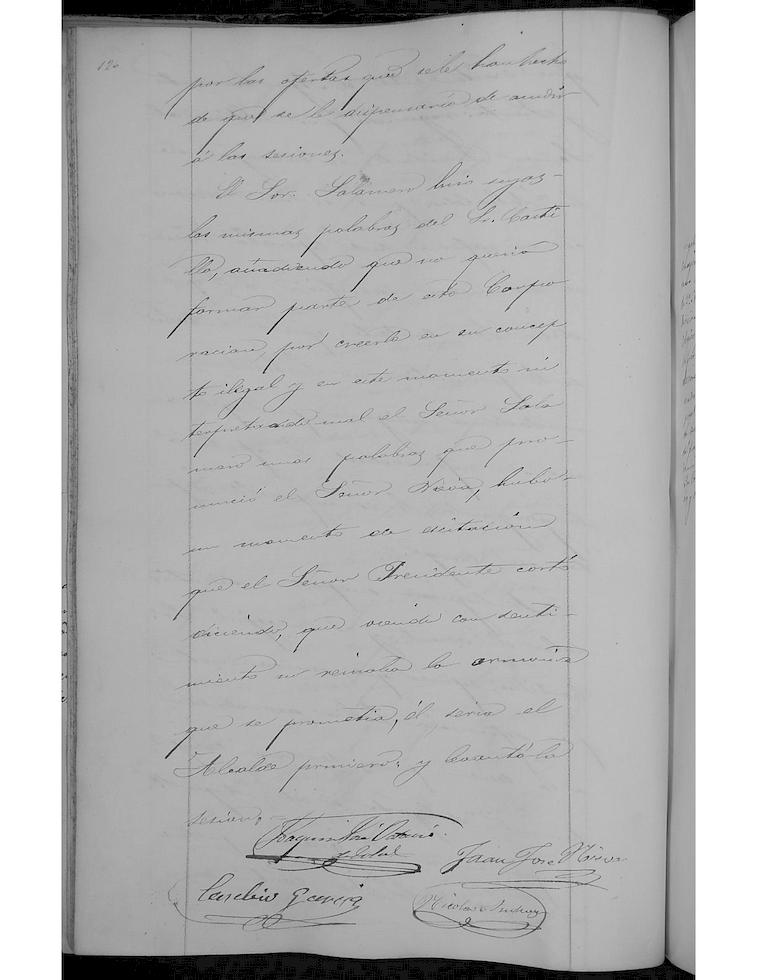 120
por las ofertas que se les han hecho
de que se le dispensaria de acudir
á las sesiones.
El Sor. Salamero hizo suyas
las mismas palabras del Sr. Casti
llo, añadiendo que no queria
formar parte de esta Corpo
racion, por creerla en su concep
to ilegal y en este momento in
terpretando mal el Señor Sala
mero unas palabras que pro-
nunció el Señor Nieva, hubo
un momento de escitacion
que el Señor Presidente cortó
diciendo, que viendo con senti-
miento no reinaba la armonia
que se prometia, él seria el
Alcalde primero; y levantó la
sesion.
Joaquin
Juan José Nieva
Eusebio Garcia
Nicolas